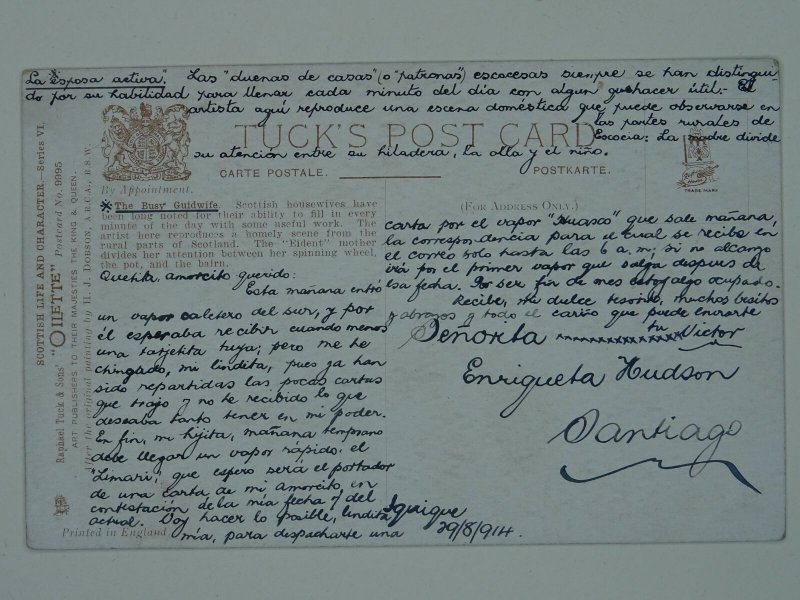 La "esposa activa". Las "duenas de casas" (o "patronas") escocesas siempre se han distingui-
do por su habilidad para llenar cada minuto del dia con algun quehacer útil.- El
artista aquí reproduce una escena doméstica que puede observarse en
las partes rurales de
Escocia: La madre divide
su atención entre su hiladera, la olla y el niño.
TUCK'S POST CARD
CARTE POSTALE.
POSTKARTE.
TRADE MARK
By Appointment.
(FOR ADDRESS ONLY.)
The Busy Guidwife. Scottish housewives have
been long noted for their ability to fill in every
minute of the day with some useful work. The
artist here reproduces a homely scene from the
rural parts of Scotland. The "Eident" mother
divides her attention between her spinning wheel,
the pot, and the bairn.
SCOTTISH LIFE AND CHARACTER.—Series VI.
Raphael Tuck & Sons' "OILETTE" Postcard No. 9995
ART PUBLISHERS TO THEIR MAJESTIES THE KING & QUEEN.
After the original painting by H. J. DOBSON, A.R.C.A., R.S.W.
Printed in England
Quetita, amorcito querido:
Esta mañana entró
un vapor caletero del sur, y por
él esperaba recibir cuando menos
una tarjetita tuya; pero me he
chingado, mi lindita, pues ya han
sido repartidas las pocas cartas
que trajo y no he recibido lo que
deseaba tanto tener en mi poder.
En fin, mi hijita, mañana temprano
debe llegar un vapor rápido, el
"Limarí", que espero será el portador
de una carta de mi amorcito, en
contestación de la mía fecha 7 del
actual. Voy hacer lo posible, lindita
mía, para despacharte una
carta por el vapor "Huasco" que sale mañana,
la correspondencia para el cual se recibe en
el correo solo hasta las 6 a.m; si no alcanzo
irá por el primer vapor que salga despues de
esa fecha. Por ser fin de mes estoy algo ocupado.
Recibe, mi dulce tesoro, muchos besitos
y abrazos y todo el cariño que puede enviarte
tu Victor
Señorita
Enriqueta Hudson
Santiago
Iquique
29/8/914.